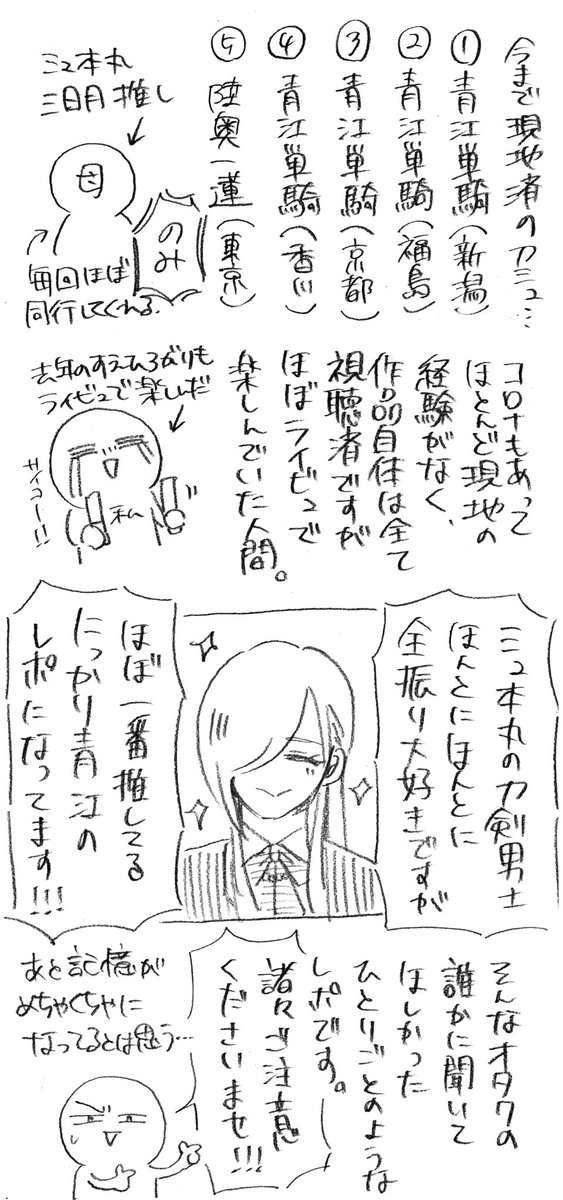 今まで現地済の刀ミュ…
① 青江単騎(新潟)
② 青江単騎(福島)
③ 青江単騎(京都)
④ 青江単騎(香川)
⑤ 陸奥一蓮(東京)
のみ
ミュ本丸
三日月推し
母
毎回ほぼ
同行してくれる.
コロナもあって
ほとんど現地の
経験がなく、
作品自体は全て
視聴済ですが
ほぼライビュで
楽しんでいた人間。
去年のすえひろがりも
ライビュで楽しんだ
サイコー!!
私
ミュ本丸の刀剣男士
ほんとにほんとに
全振り大好きですが
ほぼ一番推してる
にっかり青江の
レポになってます!!!
そんなオタクの
誰かに聞いて
ほしかった
ひとりごとのような
レポです。
諸々ご注意
くださいませ!!!
あと記憶が
めちゃくちゃに
なってるとは思う…